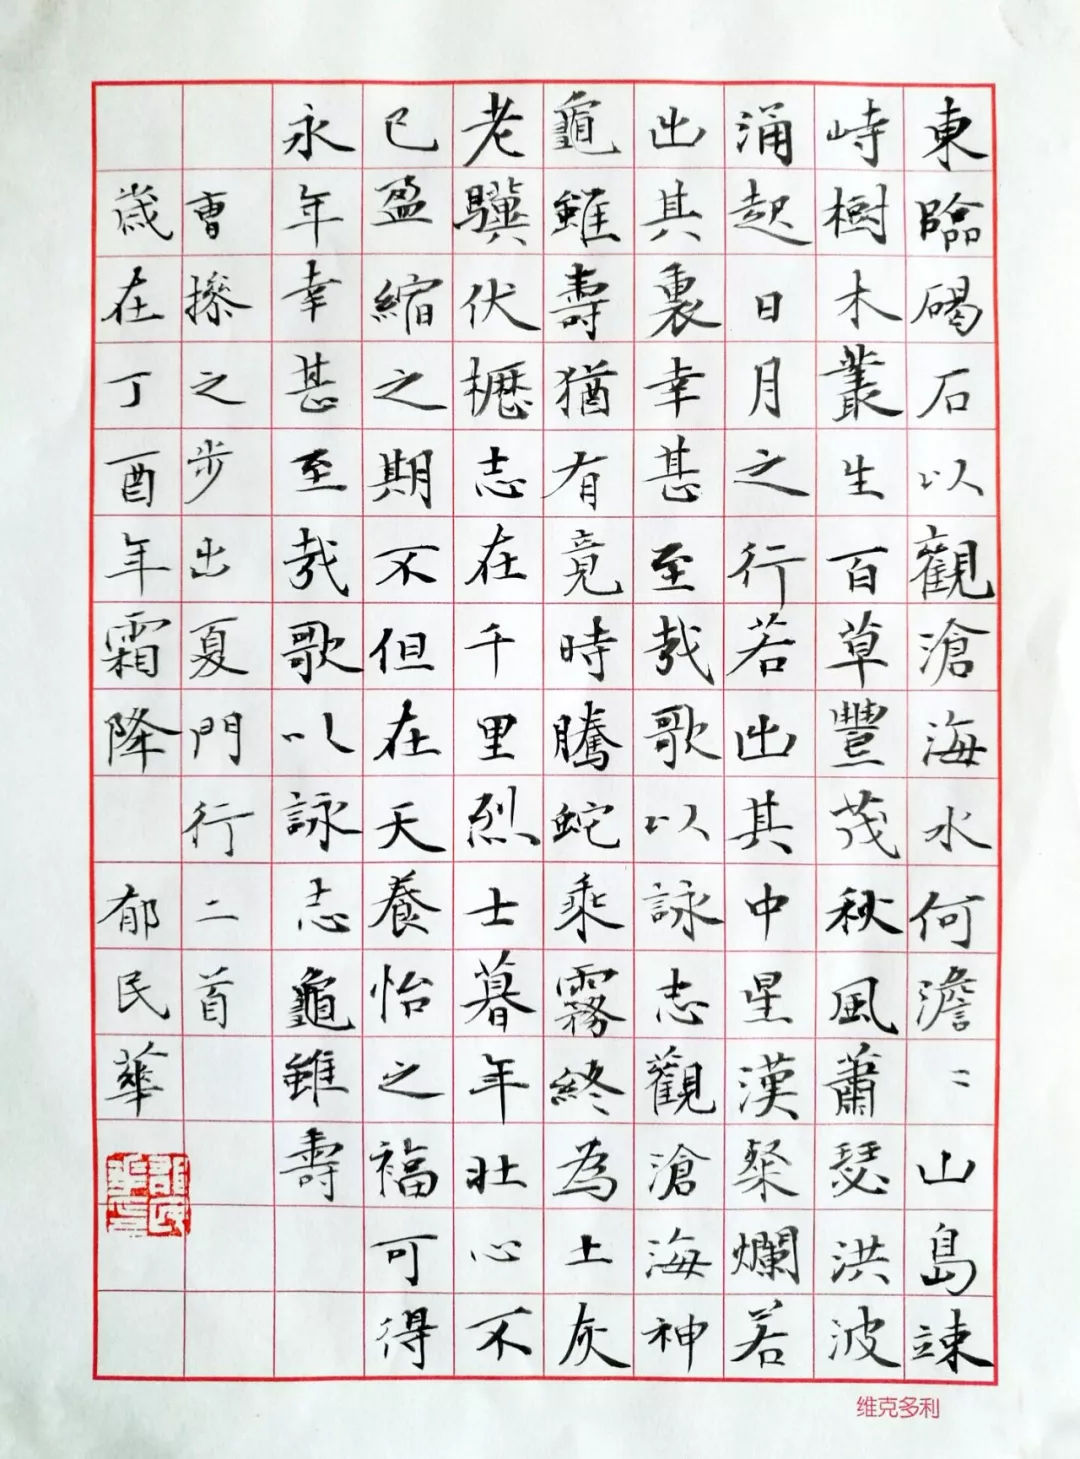 東臨碣石以觀滄海水何澹〻山島竦
峙樹木叢生百草豐茂秋風蕭瑟洪波
涌起日月之行若出其中星漢粲爛若
出其裏幸甚至哉歌以詠志觀滄海神
龜雖壽猶有竟時騰蛇乘霧終為土灰
老驥伏櫪志在千里烈士暮年壯心不
已盈縮之期不但在天養怡之福可得
永年幸甚至哉歌以詠志龜雖壽
曹操之步出夏門行二首
歲在丁酉年霜降 郁民華
维克多利